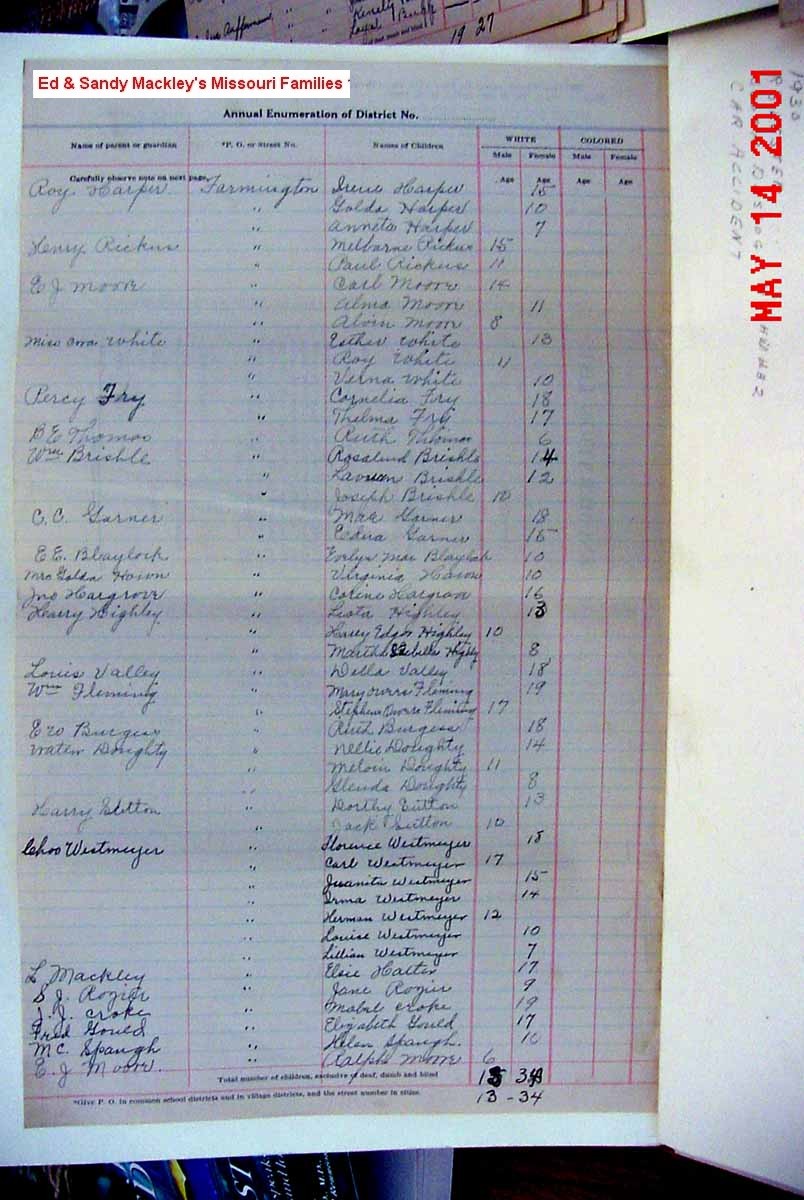 Kinely
Loyal Burgg
19 27
Ed & Sandy Mackley's Missouri Families
Annual Enumeration of District No.
Name of parent or guardian *P. O. or Street No. Names of Children WHITE COLORED
Male Female Male Female
Carefully observe note on next page. Age Age Age Age
Roy Harper Farmington Irene Harper 15
" Golda Harper 10
" Anneta Harper 7
Henry Rickus " Melborne Rickus 15
" Paul Rickus 11
E J Moore " Carl Moore 14
" Alma Moore 11
" Alvin Moore 8
Miss Ora White " Esther White 13
" Roy White 11
" Verna White 10
Percy Fry " Cornelia Fry 18
" Thelma Fry 17
B E Thomas " Ruth Thomas 6
Wm Brishle " Rosalind Brishle 14
" Brishle 12
" Joseph Brishle 10
C. C. Garner " Mae Garner 18
" Garner 15
E E. Blaylock " Evelyn Mae Blaylock 10
Mrs Golda Hawn " Virginia Hawn 10
Jno Hargrove " Corine Hargrove 16
Hearry Highley " Leota Highley 13
" Harry Edgar Highley 10
" Martha Highley 8
Louis Valley " Della Valley 18
Wm Fleming " Mary Owens Fleming 19
" Stephen Owens Fleming 17
E W Burgess " Ruth Burgess 18
Walter Doughty " Nellie Doughty 14
" Melvin Doughty 11
" Glenda Doughty 8
Harry Sutton " Dorthy Sutton 13
" Jack Sutton 10
Chas Westmeyer " Florence Westmeyer 18
" Carl Westmeyer 17
" Juanita Westmeyer 15
" Irma Westmeyer 14
" Herman Westmeyer 12
" Louise Westmeyer 10
" Lillian Westmeyer 7
L Mackley " Elsie Halter 17
S. J. Rozier " Jane Rozier 9
J. J. Croke " Mabel Croke 19
Fred Gould " Elizabeth Gould 17
M C. Spaugh " Helen Spaugh. 10
E. J Moore. " Ralph Moore 6
Total number of children, exclusive of deaf, dumb and blind 13 34
*Give P. O. in common school districts and in village districts, and the street number in cities. 13 - 34
1930
CAR ACCIDENT
MAY 14 2001